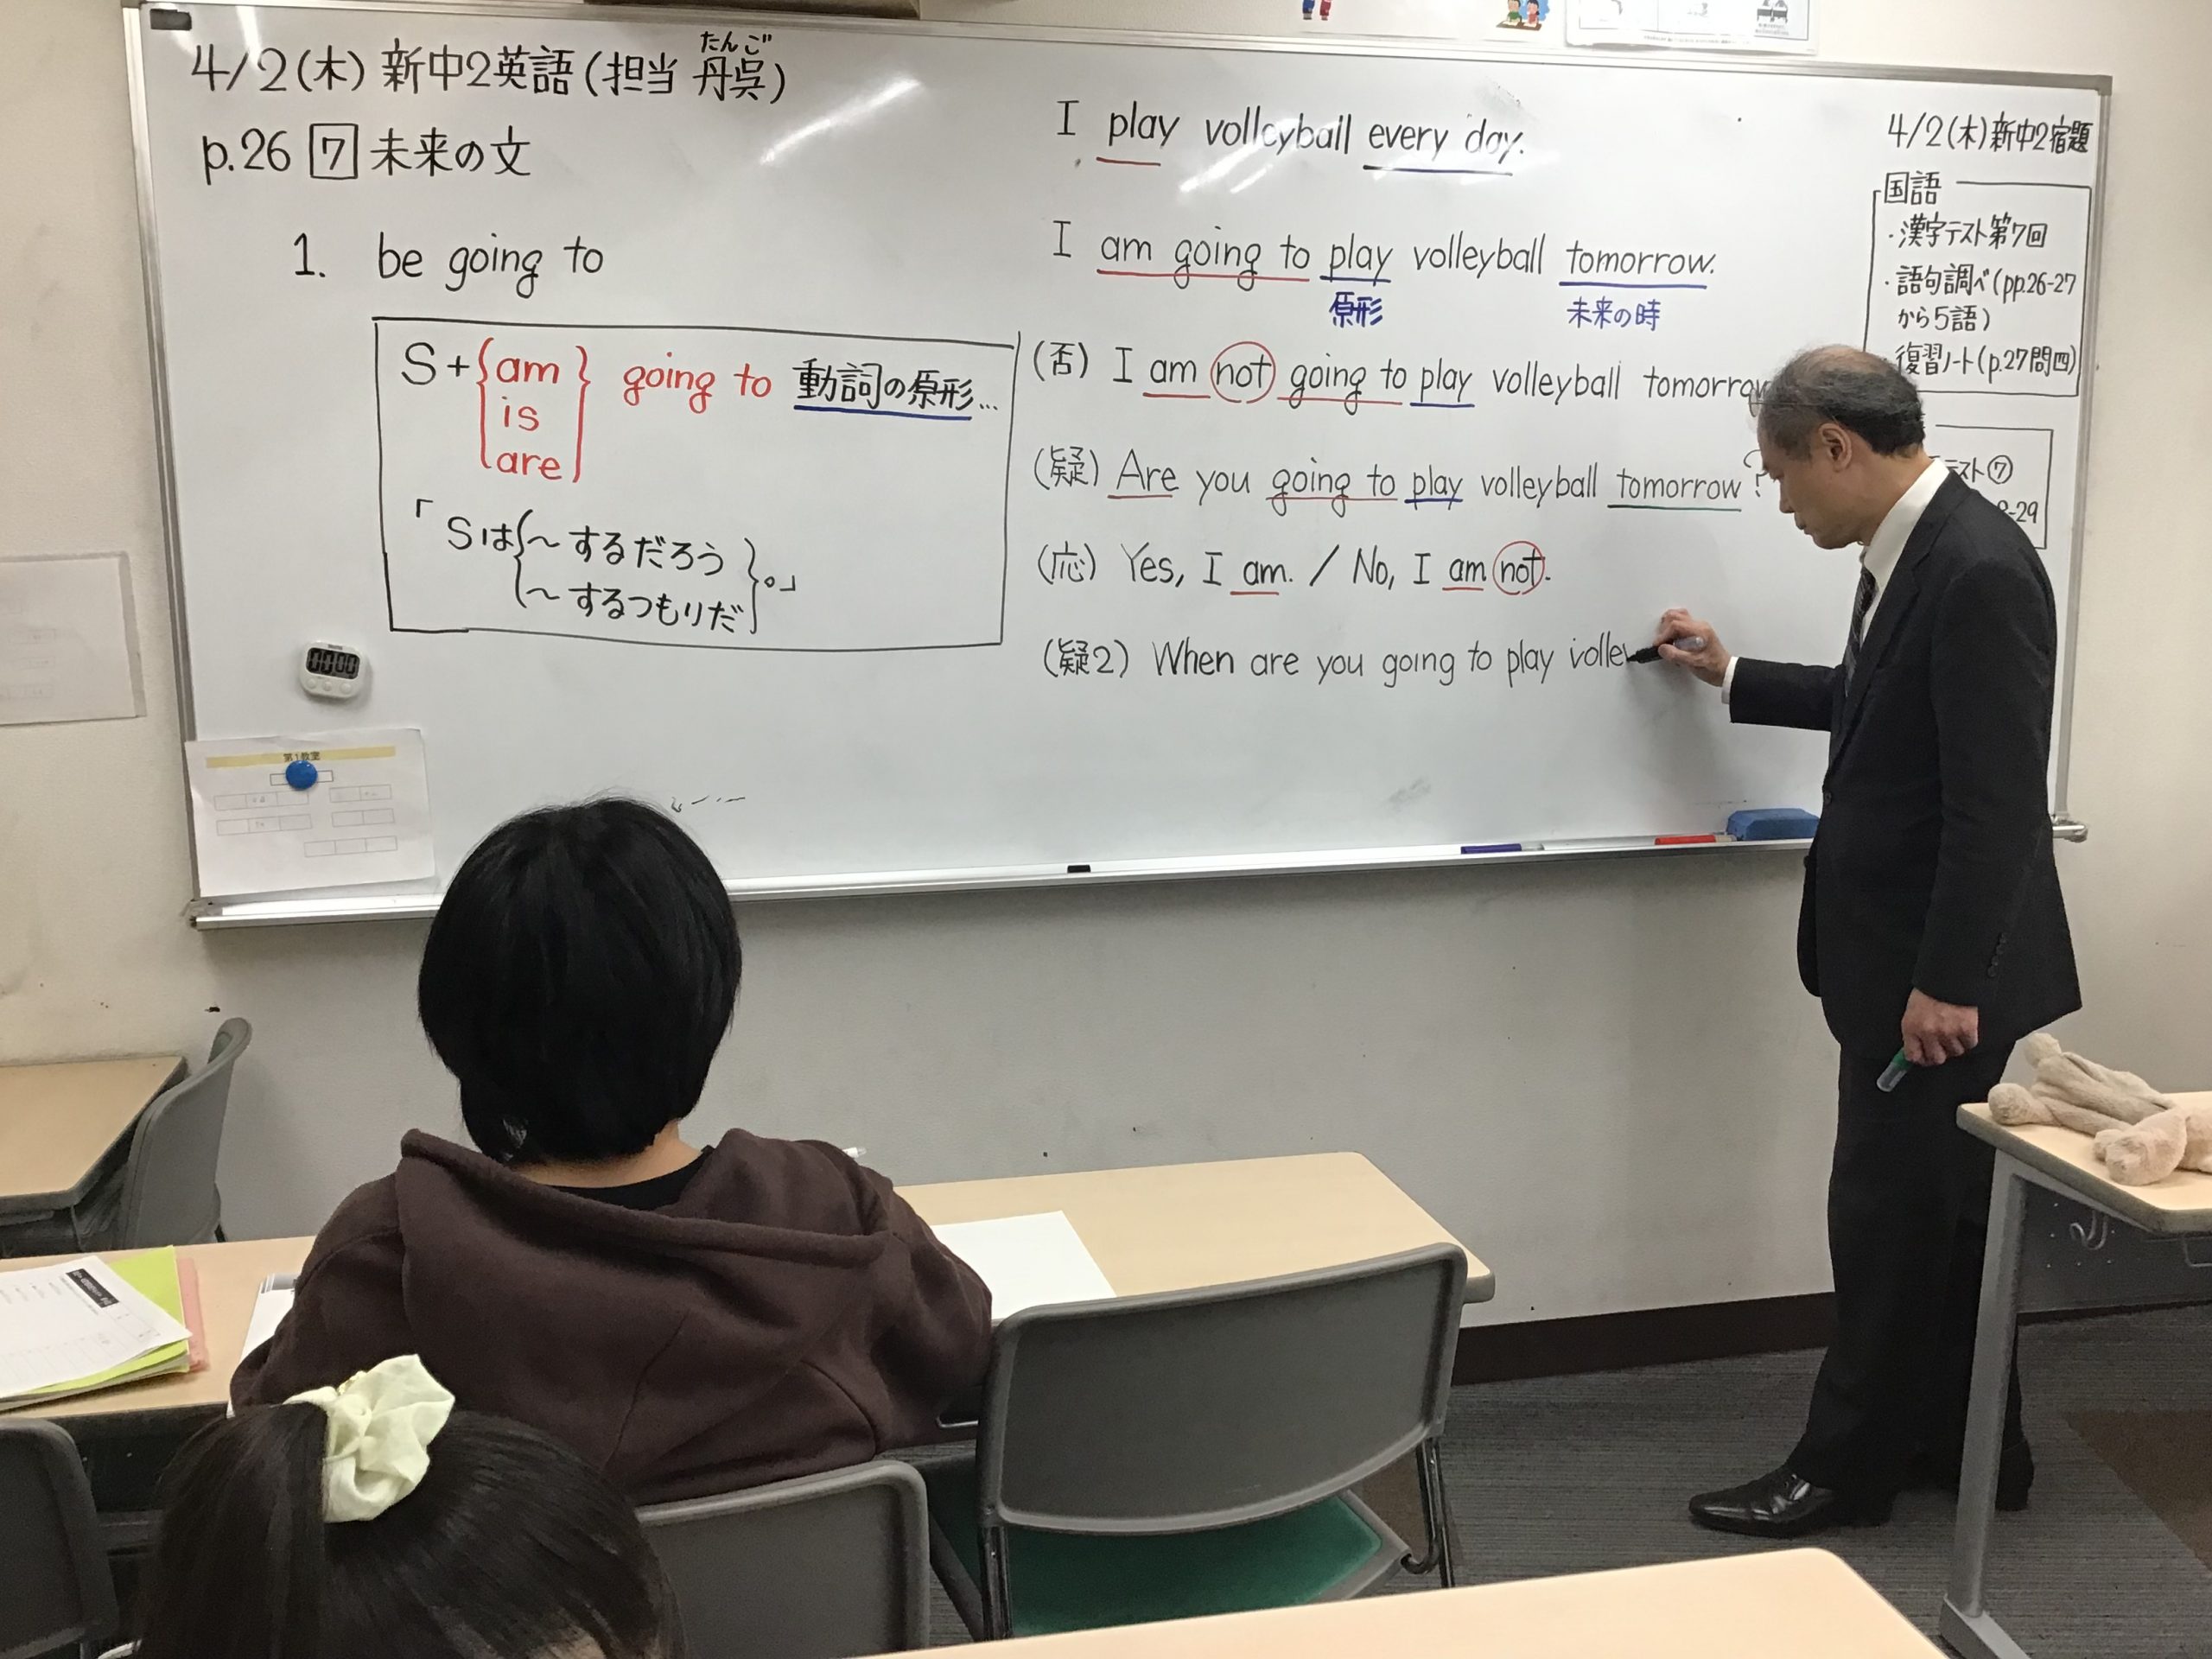 4/2(木) 新中2英語(担当 丹呉)
たんご
p.26 7 未来の文
1. be going to
S+{am is are} going to 動詞の原形…
「Sは{~するだろう ~するつもりだ}。」
I play volleyball every day.
I am going to play volleyball tomorrow.
原形 未来の時
(否) I am not going to play volleyball
(疑) Are you going to play volleyball tomorrow?
(応) Yes, I am. / No, I am not.
(疑2) When are you going to play volley
4/2(木)新中2宿題
国語
・漢字テスト第7回
・語句調べ(pp.26-27
から5語)
・復習ノート(p.27問四)
テスト⑦
-29
00:00
第1教室